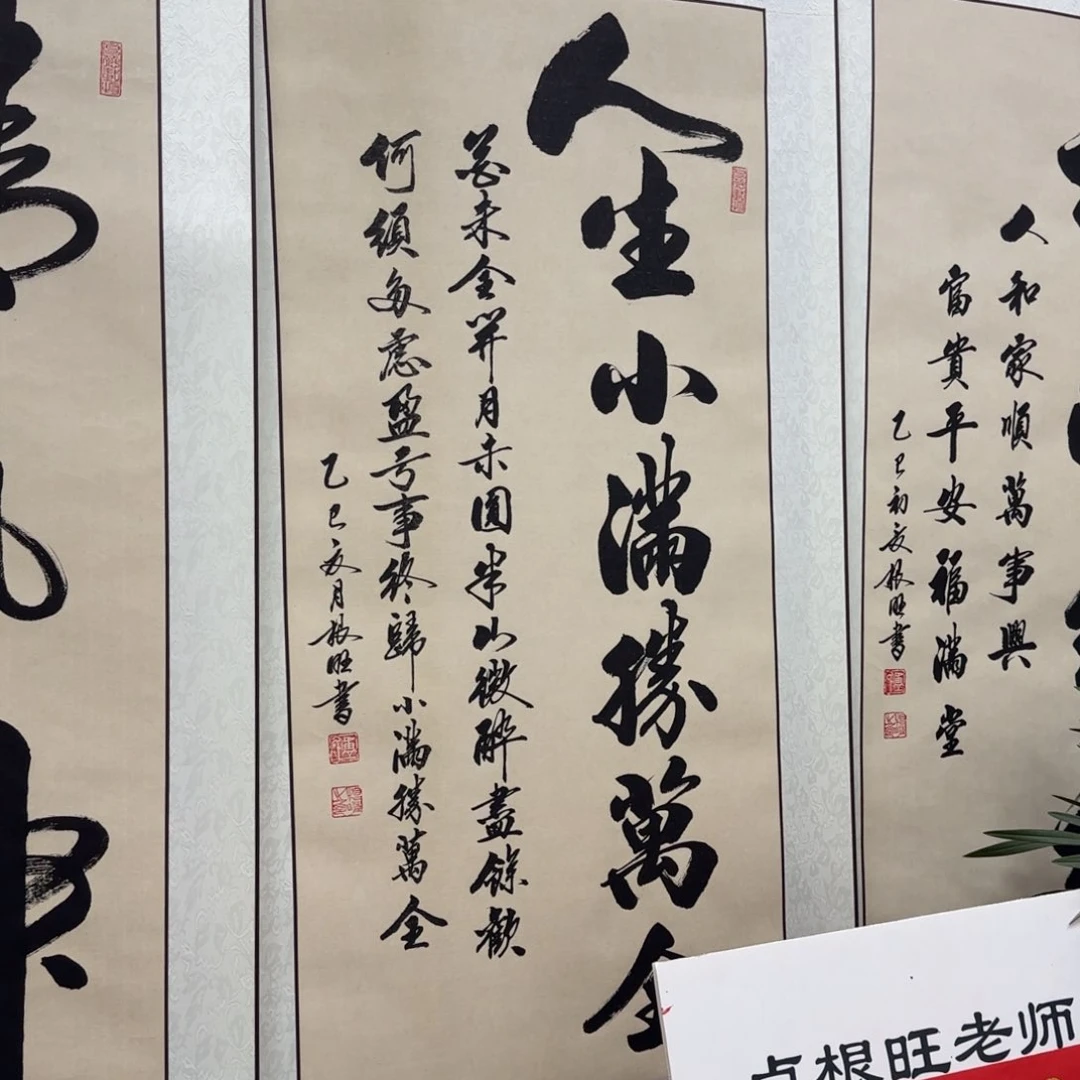 人和家順萬事興
富貴平安福滿堂
乙巳初夏根旺書
人生小滿勝萬全
花未全開月未圓半山微醉盡餘歡
何須多慮盈亏事終歸小滿勝萬全
乙巳夏月根旺書
根旺老师